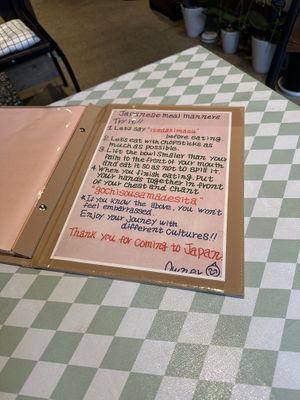 Japanese meal manners
Try it!!
1. Let's say "itadakimasu"
before eating
2. Let's eat with chopsticks as
much as possible.
3. Lift the bowl smaller than your
palm to the front of your mouth
and eat it so as not to spill it.
4. When you finish eating, put
your hands together in front
of your chest and chant
"gochisousamadesita"
If you know the above, you won't
feel embarrassed.
Enjoy your journey with
different cultures!!
Thank you for coming to Japan
Owner